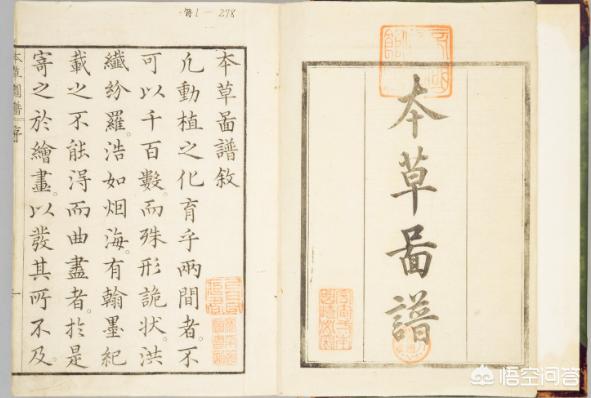 本草啚譜
本草啚譜敘
凢動植之化育乎兩間者。不
可以千百數。而殊形詭狀。洪
纎紛羅。浩如烟海。有翰墨紀
載之不能淂而曲盡者。於是
寄之於繪畫。以發其所不及。
本草圖譜 序
別1－278
悟空问答